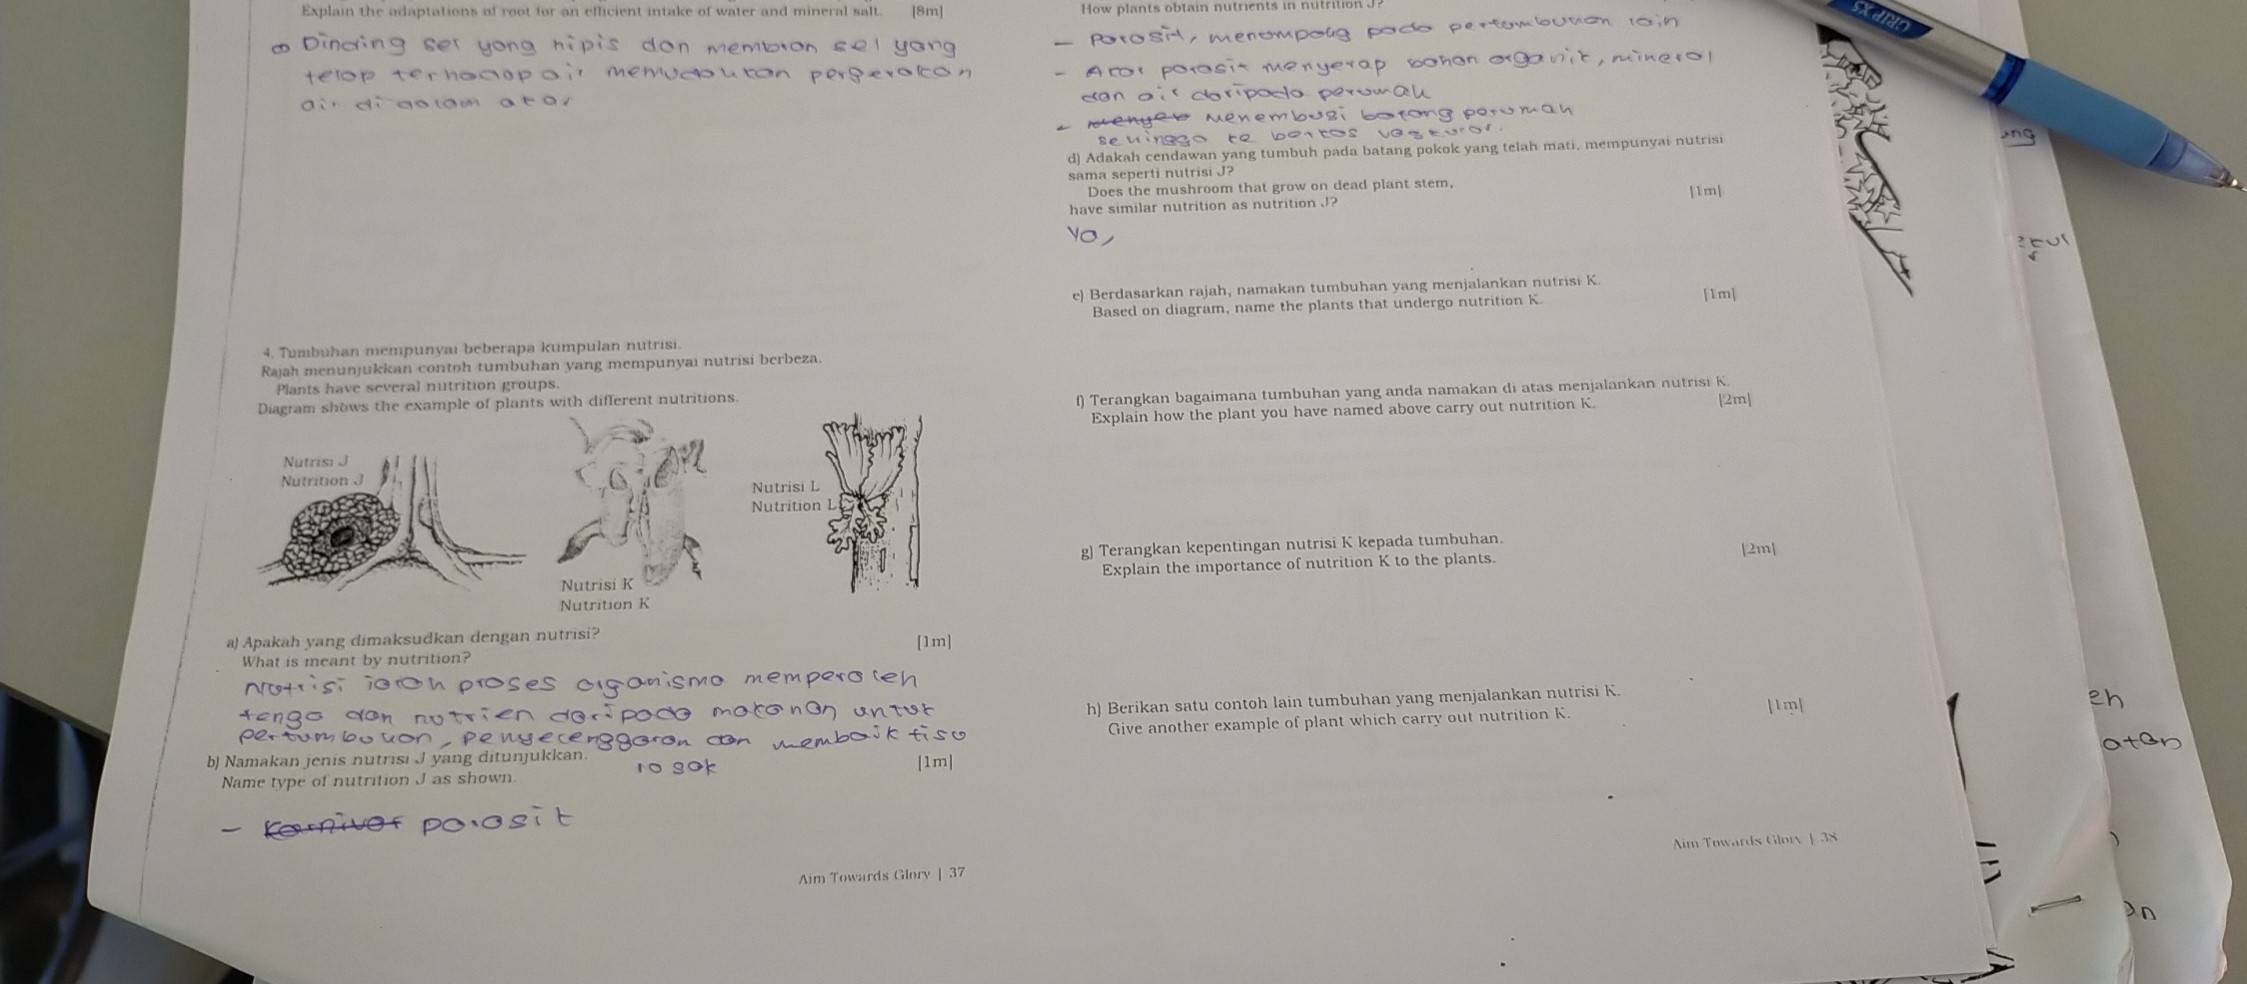 Explain the adaptations of root for an efficient intake of water and mineral salt. [8m]
Dinding sel yang nipis dan membran sel yang
telap terhadap air memudahkan pergerakan
air di dalam akar
4. Tumbuhan mempunyai beberapa kumpulan nutrisi.
Rajah menunjukkan contoh tumbuhan yang mempunyai nutrisi berbeza.
Plants have several nutrition groups.
Diagram shows the example of plants with different nutritions.
Nutrisi J
Nutrition J
Nutrisi K
Nutrition K
Nutrisi L
Nutrition L
a) Apakah yang dimaksudkan dengan nutrisi? [1m]
What is meant by nutrition?
Nutrisi ialah proses organisma memperoleh
tenaga dan nutrien daripada makanan untuk
pertumbuhan, penyelenggaraan dan membaik tisu
rosak
b) Namakan jenis nutrisi J yang ditunjukkan. [1m]
Name type of nutrition J as shown.
- Karnivor parasit
Aim Towards Glory | 37
How plants obtain nutrients in nutrition J?
- Parasit, menompang pada pertumbuhan lain
- Akar parasit menyerap bahan organik, mineral
dan air daripada perumah
- menyer Menembusi batang perumah
sehingga ke berkas vaskular.
d) Adakah cendawan yang tumbuh pada batang pokok yang telah mati, mempunyai nutrisi
sama seperti nutrisi J?
Does the mushroom that grow on dead plant stem, [1m]
have similar nutrition as nutrition J?
Ya,
e) Berdasarkan rajah, namakan tumbuhan yang menjalankan nutrisi K. [1m]
Based on diagram, name the plants that undergo nutrition K.
f) Terangkan bagaimana tumbuhan yang anda namakan di atas menjalankan nutrisi K.
Explain how the plant you have named above carry out nutrition K. [2m]
g) Terangkan kepentingan nutrisi K kepada tumbuhan. [2m]
Explain the importance of nutrition K to the plants.
h) Berikan satu contoh lain tumbuhan yang menjalankan nutrisi K. [1m]
Give another example of plant which carry out nutrition K.
Aim Towards Glory | 38